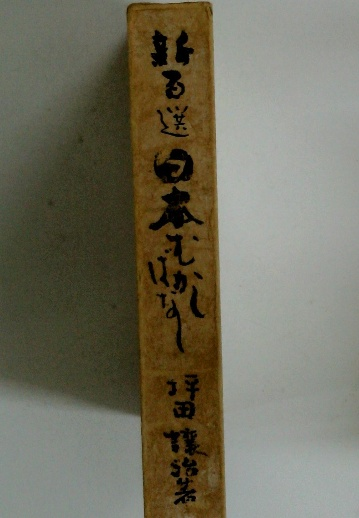 新百選
日本むかしばなし
坪田譲治著